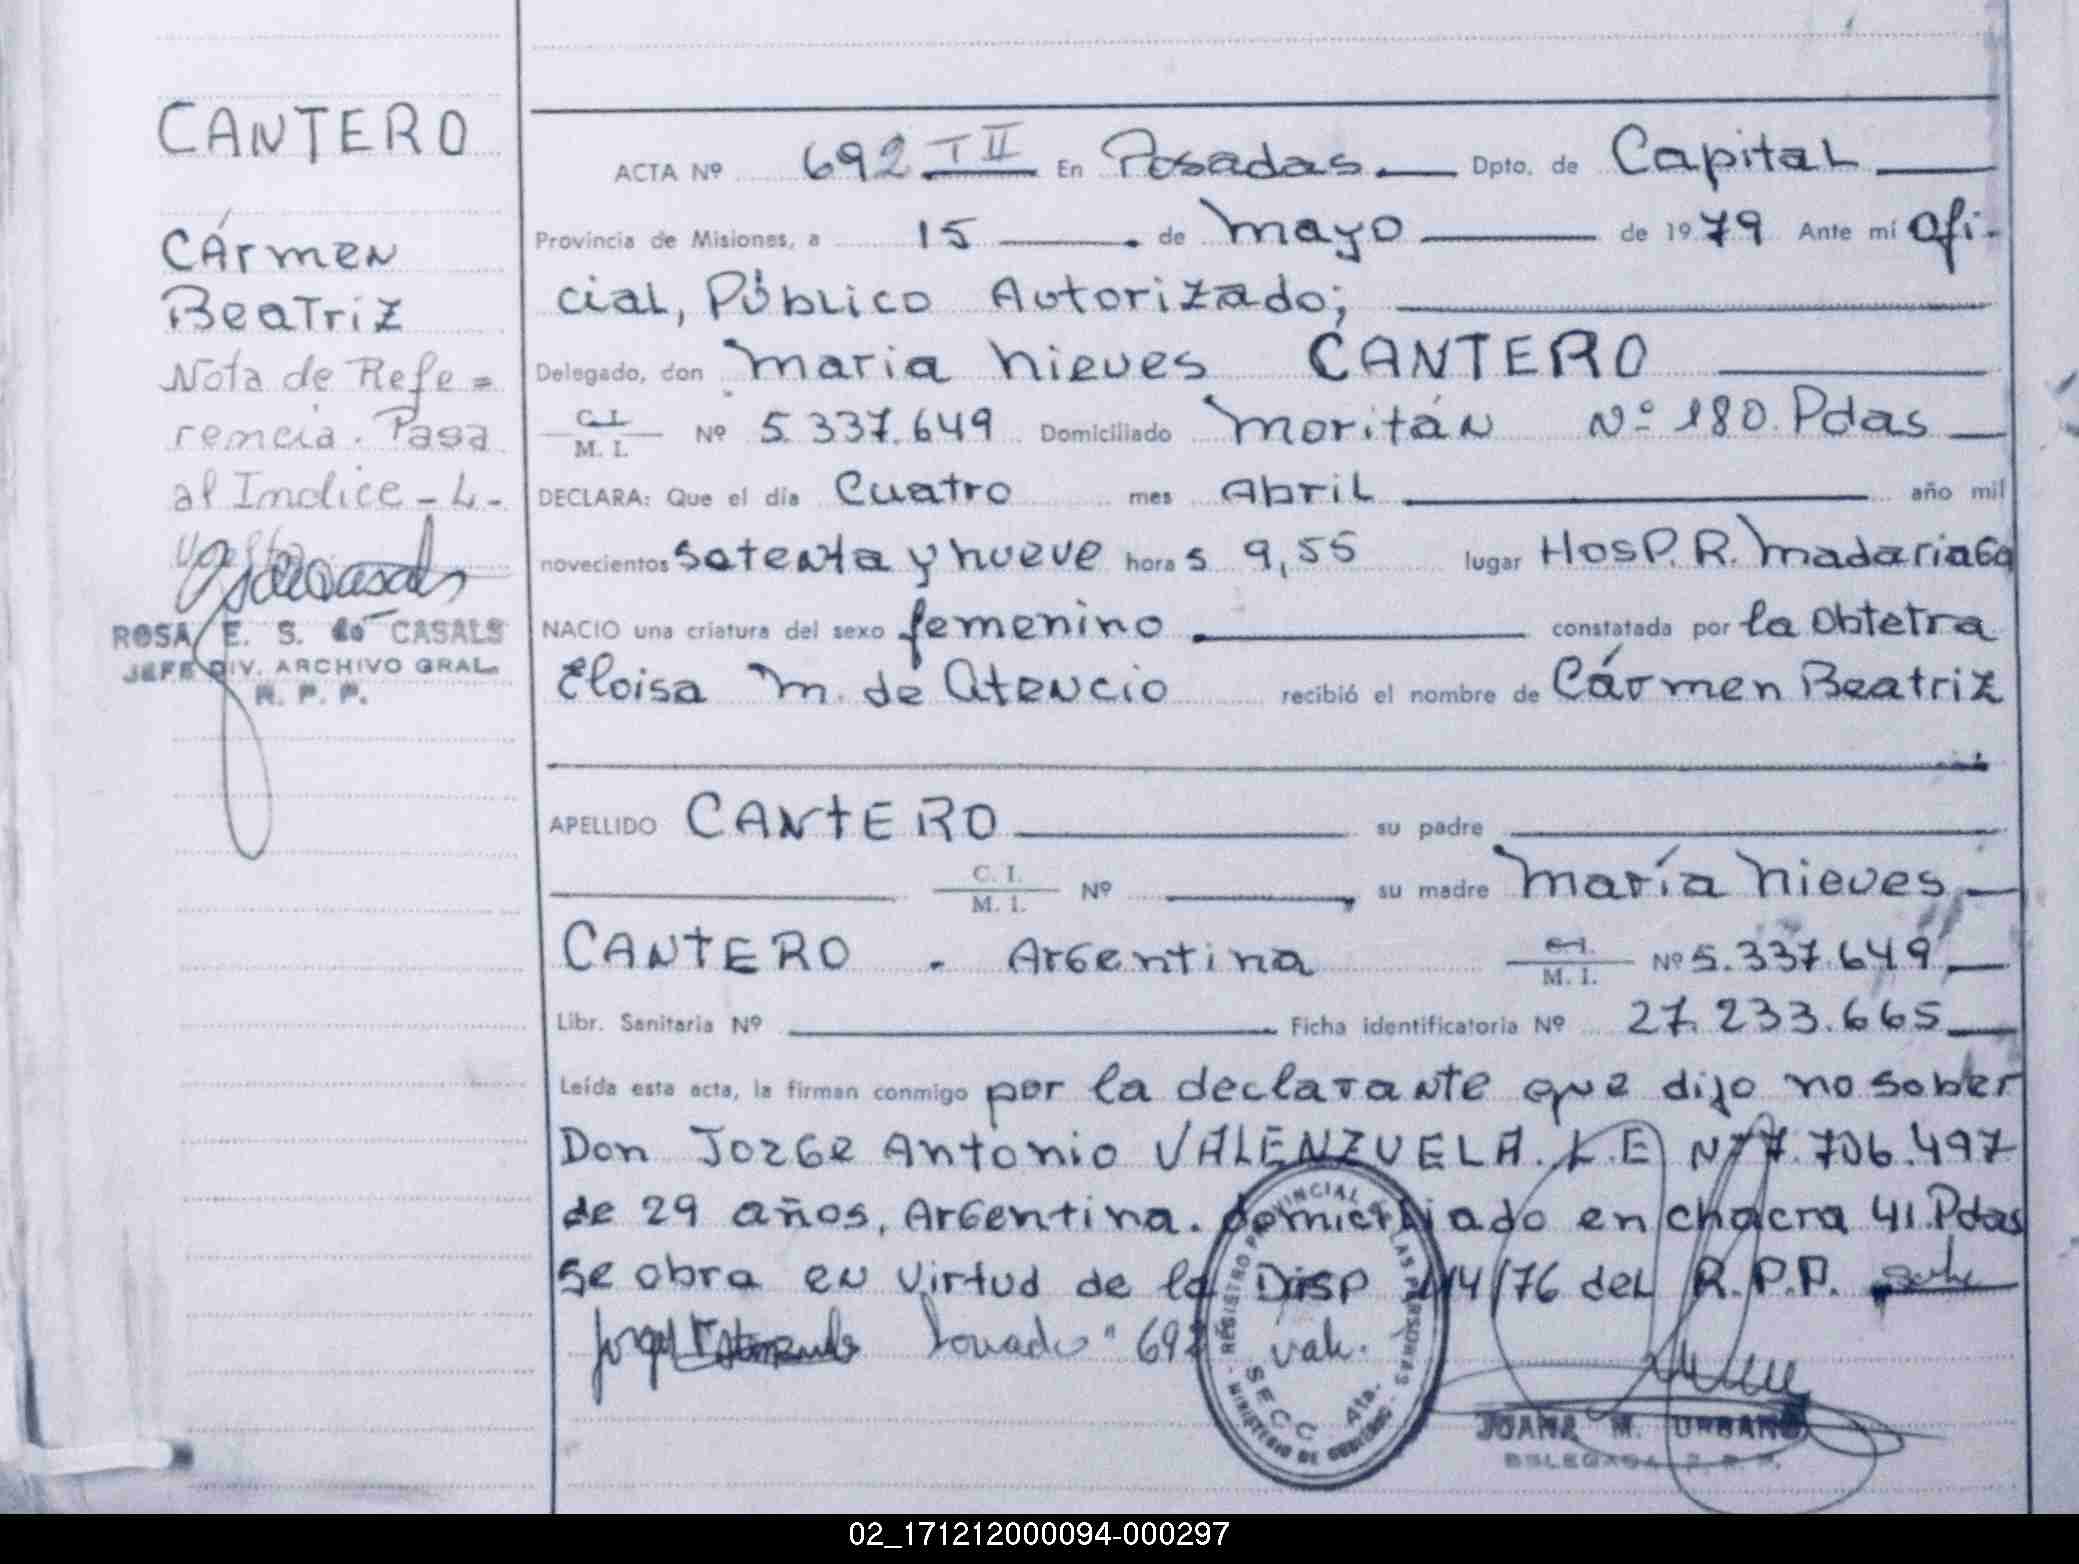 CANTERO
Cármen
Beatriz
Nota de Refe=
rencia. Pasa
al Indice - L-
ROSA E. S. de CASALS
JEFE DIV. ARCHIVO GRAL.
R. P. P.
ACTA Nº 692 T II En Posadas. Dpto. de Capital
Provincia de Misiones, a 15 de mayo de 1979 Ante mí Ofi-
cial, Público Autorizado;
Delegado, don maria nieves CANTERO
C. I. / M. I. Nº 5.337.649 Domiciliado moritán Nº 180 Pdas
DECLARA: Que el día Cuatro mes Abril año mil
novecientos setenta y nueve horas 9,55 lugar Hosp. R. madariaga
NACIO una criatura del sexo femenino constatada por la Obtetra
Eloisa m. de Atencio recibió el nombre de Cármen Beatriz
APELLIDO CANTERO su padre
C. I. / M. I. Nº su madre maría nieves
CANTERO - Argentina C. I. / M. I. Nº 5.337.649
Libr. Sanitaria Nº Ficha identificatoria Nº 27.233.665
Leída esta acta, la firman conmigo por la declarante que dijo no saber
Don Jorge Antonio VALENZUELA. L.E Nº 7.706.497
de 29 años, Argentina. domiciliado en chacra 41. Pdas
se obra en virtud de la Disp 114/76 del R.P.P.
692 vale.
REGISTRO PROVINCIAL DE LAS PERSONAS
SECC 4ta.
- MINISTERIO DE GOBIERNO -
JUANA M. URBANO
DELEGADA R. P. P.
02_171212000094-000297